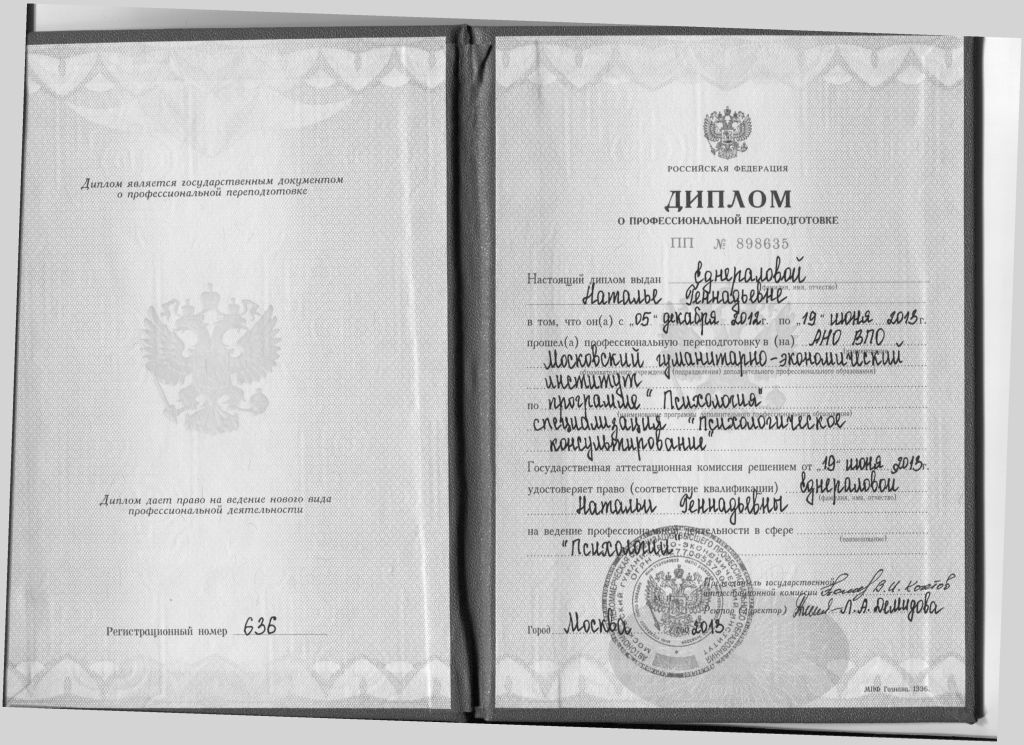 Диплом является государственным документом
о профессиональной переподготовке
Диплом дает право на ведение нового вида
профессиональной деятельности
Регистрационный номер 636
РОССИЙСКАЯ ФЕДЕРАЦИЯ
ДИПЛОМ
О ПРОФЕССИОНАЛЬНОЙ ПЕРЕПОДГОТОВКЕ
ПП № 898635
Настоящий диплом выдан Еднераловой
(фамилия, имя, отчество)
Наталье Геннадьевне
в том, что он(а) с „05“ декабря 2012 г. по „19“ июня 2013 г.
прошел(а) профессиональную переподготовку в (на) АНО ВПО
Московский гуманитарно-экономический
(подразделения) дополнительного профессионального образования)
институт
по программе "Психология"
(наименование программы дополнительного профессионального образования)
специализация "Психологическое
консультирование"
Государственная аттестационная комиссия решением от „19“ июня 2013 г.
удостоверяет право (соответствие квалификации) Еднераловой
(фамилия, имя, отчество)
Натальи Геннадьевны
на ведение профессиональной деятельности в сфере
(наименование)
"Психологии"
Председатель государственной
аттестационной комиссии
Ректор (директор) Л.А. Демидова
Город Москва 2013
МПФ Гознака. 1996.